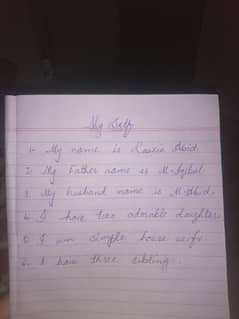 My Self
1- My name is Rawzia Abid.
2. My Father name is M. Iqbal.
3. My husband name is M. Abid.
4. I have two adorable daughter.
5. I am simple house wife.
6. I have three sibling.